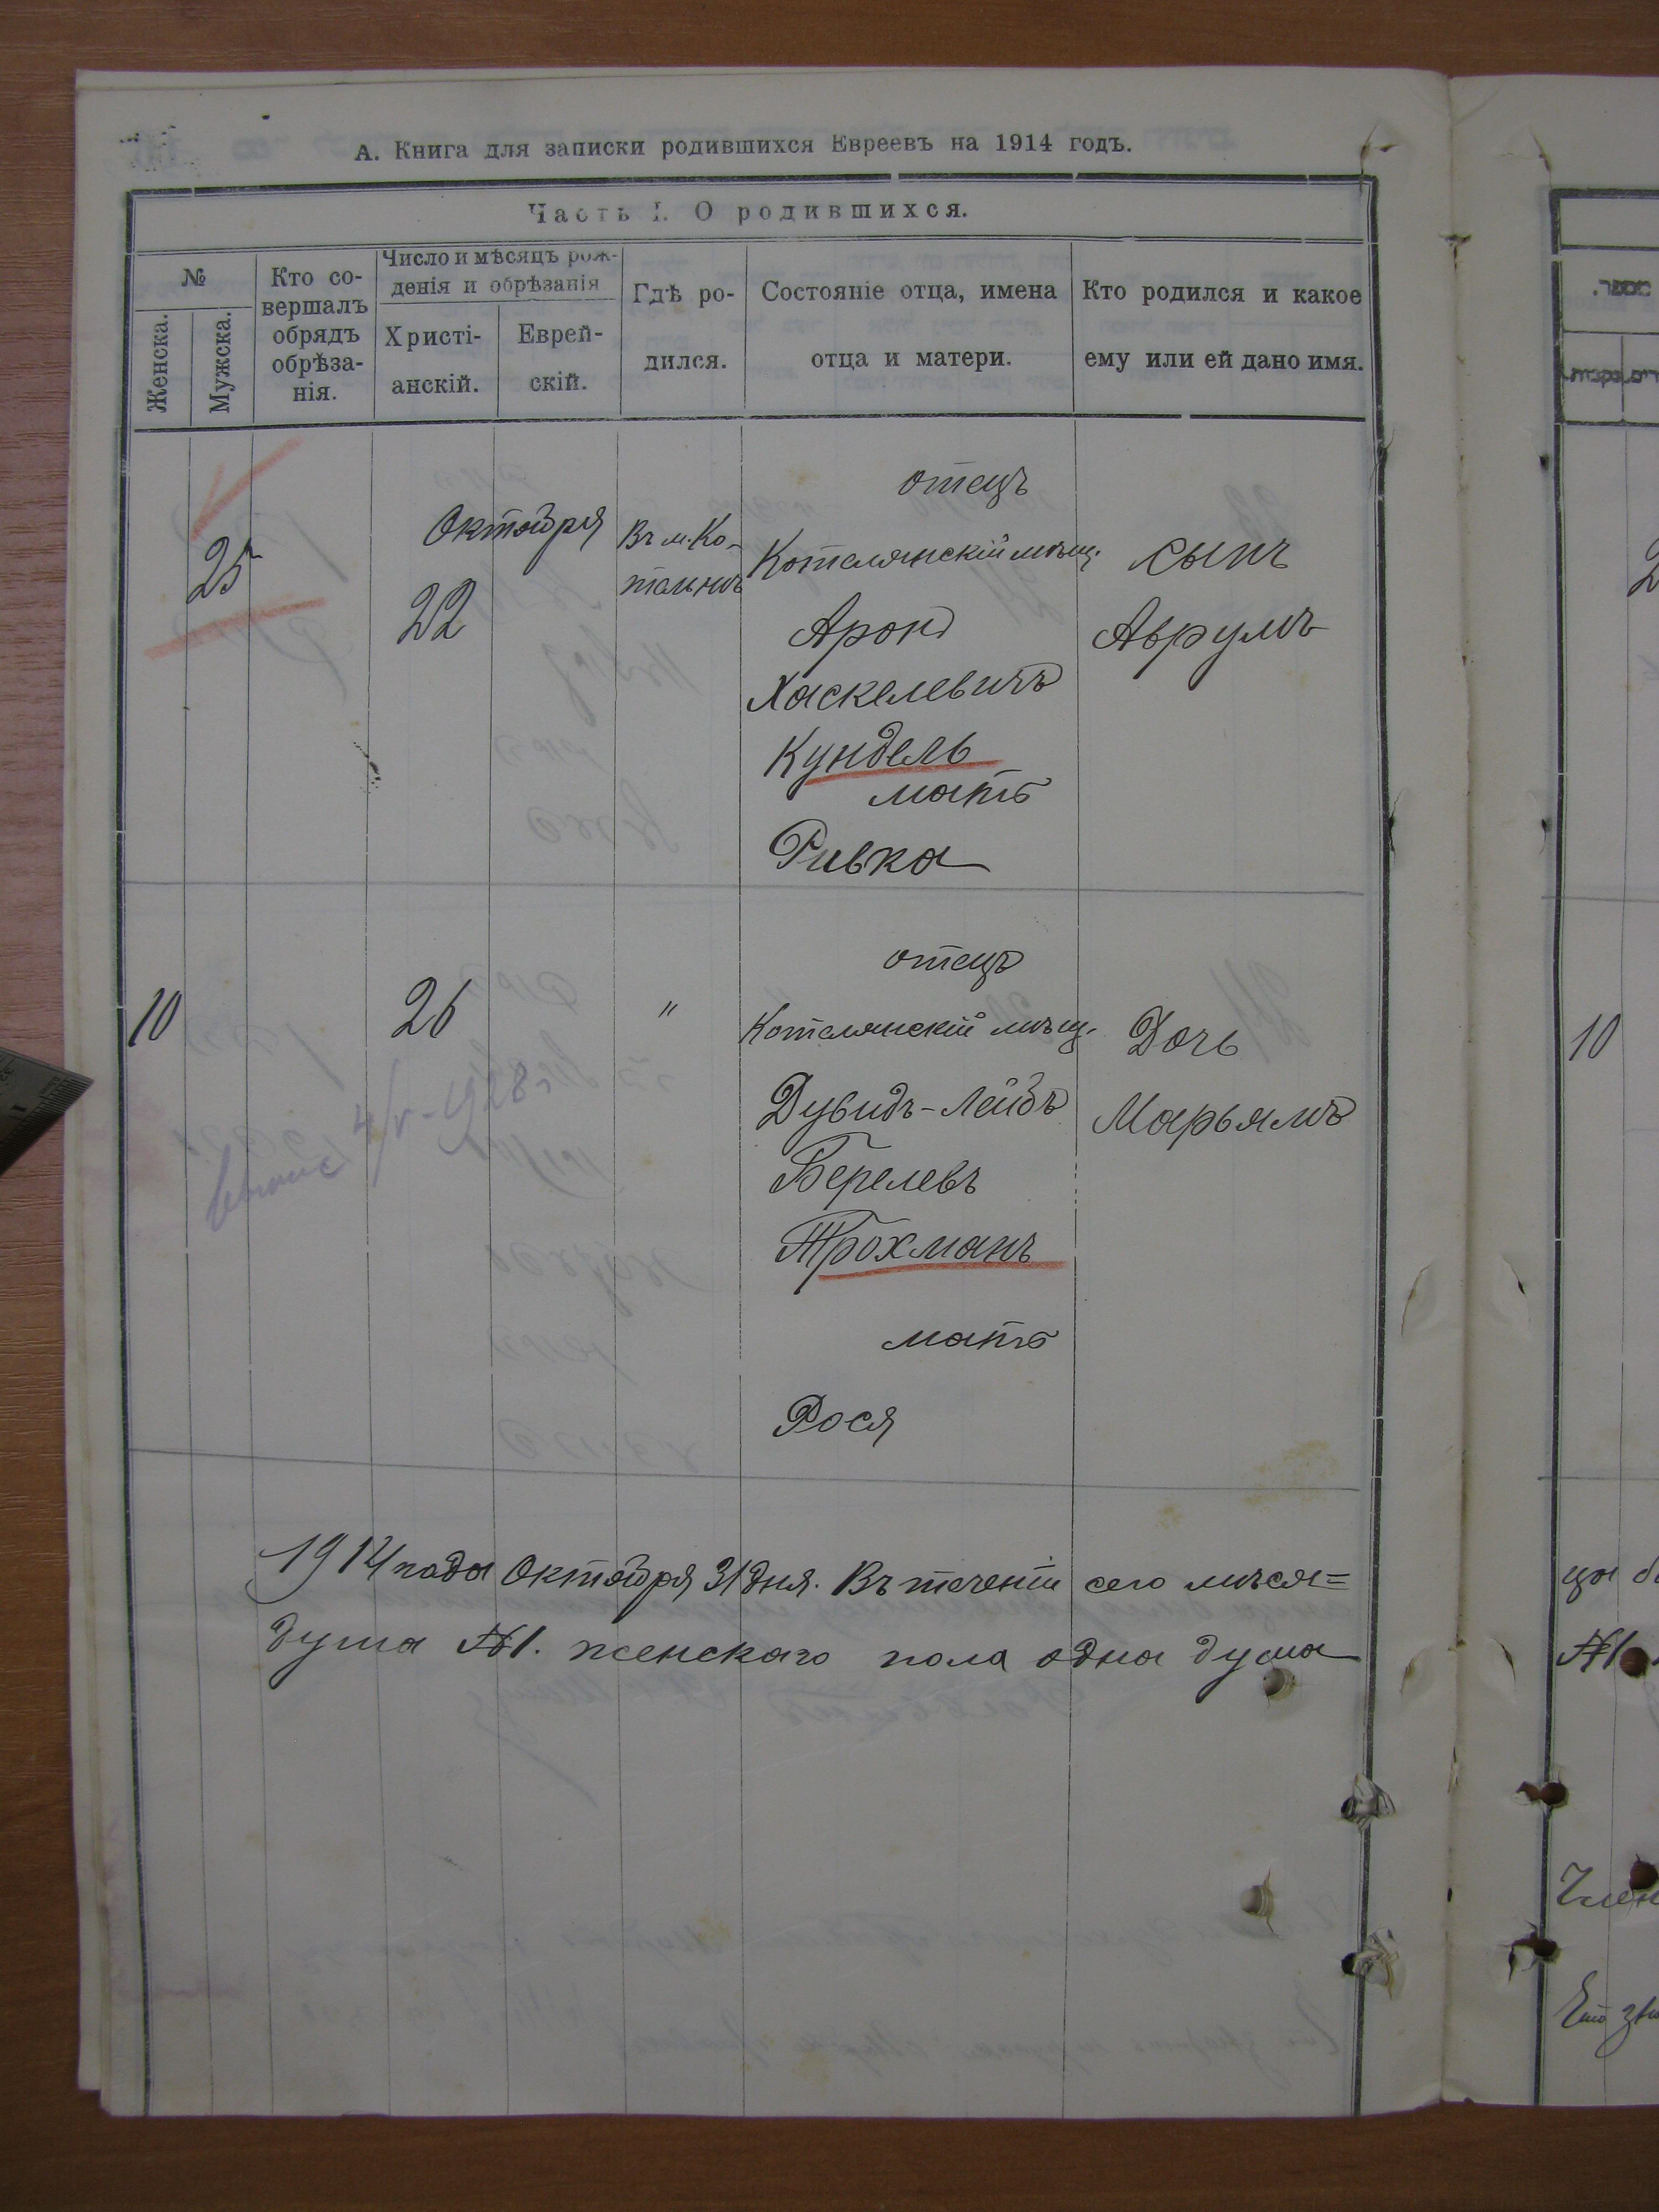 А. Книга для записки родившихся Евреевъ на 1914 годъ.
Часть I. О родившихся.
№
Женска.
Мужска.
Кто со-
вершалъ
обрядъ
обрѣза-
нія.
Число и мѣсяцъ рож-
денія и обрѣзанія
Христі-
анскій.
Еврей-
скій.
Гдѣ ро-
дился.
Состояніе отца, имена
отца и матери.
Кто родился и какое
ему или ей дано имя.
25
Октября
22
Въ м. Ко-
тельнѣ
отецъ
Котелянскій мѣщ.
Аронъ
Хаскелевичъ
Кундель
мать
Ривка
сынъ
Аврумъ
10
26
"
отецъ
Котелянскій мѣщ.
Дувидъ-Лейбъ
Берелевъ
Трохманъ
мать
Рося
Дочь
Марьямъ
4/V-1928г
1914 года Октября 31 дня. Въ теченіи сего мѣся=
душа №1. женскаго пола одна душа
10
цы
№1
Член